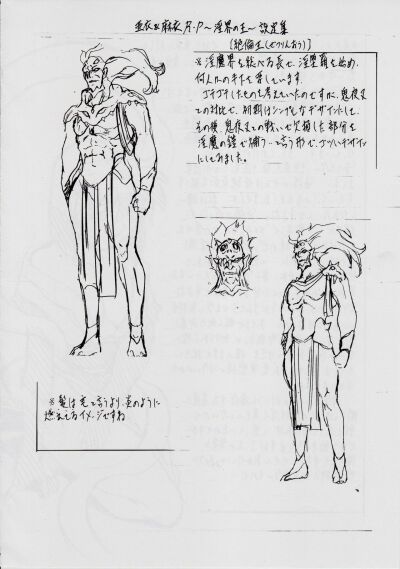 亜衣&麻衣 R・P〜淫界の王〜設定集
[絶倫王(ぜつりんおう)]
※淫魔界を統べる長で、淫堕羅を始め、
何人かのキャラを束ねています。
ゴチャゴチャしたものも考えていたのですが、鬼夜叉
との対比で、初期はシンプルなデザインにして、
その後、鬼夜叉との戦いで欠損した部分を
淫魔の鎧で補う…と言う形で、ゴツいデザイン
にしてみました。
※髪は毛と言うより、炎のように
燃えてるイメージですね